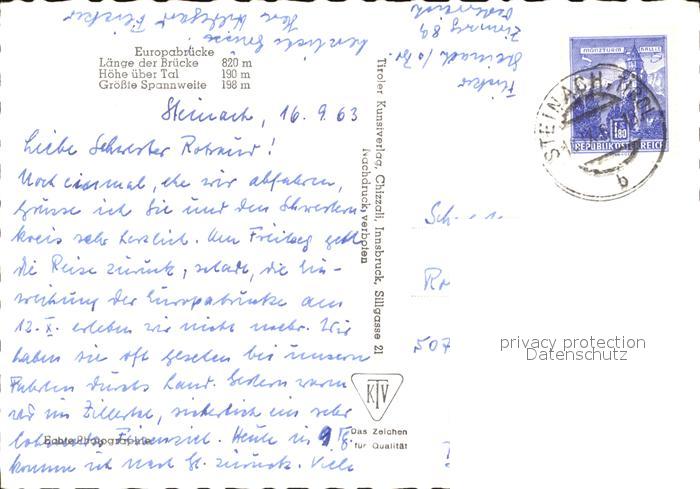 Europabrücke
Länge der Brücke 820 m
Höhe über Tal 190 m
Größte Spannweite 198 m
Steinach, 16.9.63
Liebe Schwester Rotraud!
Noch einmal, ehe wir abfahren,
grüsse ich Sie und den Schwestern
kreis sehr herzlich. Am Freitag geht
die Reise zurück, schade, die Ein-
weihung der Europabrücke am
12.X. erleben wir nicht mehr. Wir
haben sie oft gesehen bei unseren
Fahrten durchs Land. Gestern waren
wir im Zillertal, sicherlich ein sehr
Ferienziel. Heute
komme ich nach zurück. Viele
herzliche Grüsse
Ihre Hildegard Fincker
Fincker
Steinach
89
Echte Photographie
Tiroler Kunstverlag Chizzali, Innsbruck, Sillgasse 21
Nachdruck verboten
KTV
Das Zeichen
für Qualität
MÜNZTURM HALL I.T.
1.80
REPUBLIK ÖSTERREICH
STEINACH, TIROL
b
Sch
507
privacy protection
Datenschutz